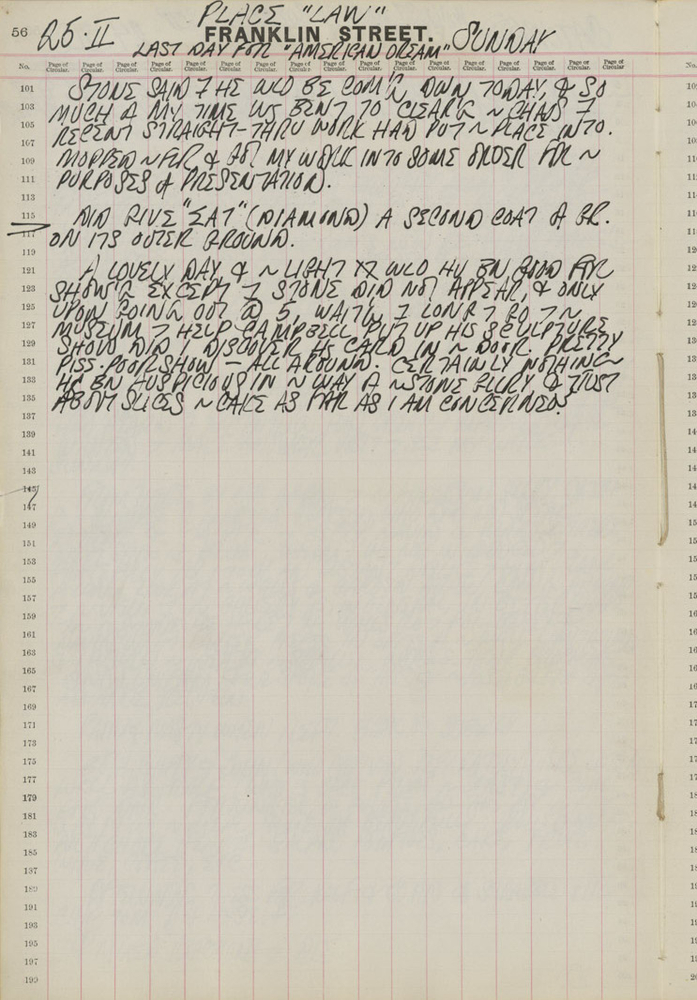 PLACE "LAW"
56 25·II FRANKLIN STREET. SUNDAY
LAST DAY FOR "AMERICAN DREAM"
No. Page of Circular. Page of Circular. Page of Circular. Page of Circular. Page of Circular. Page of Circular. Page of Circular. Page of Circular. Page of Circular. Page of Circular. Page of Circular. Page of Circular. Page of Circular. Page of Circular. Page of Circular. Page of Circular. Page of Circular.
101 STONE SAID 7 HE WLD BE COM'G DWN TODAY, & SO
103 MUCH A MY TIME WS BENT TO CLEAR'G ~ CHAOS 7
105 RECENT STRAIGHT-THRU WORK HAD PUT ~ PLACE INTO.
107
109 MOPPED ~ FLR & GOT MY WORK INTO SOME ORDER FR ~
111 PURPOSES A PRESENTATION.
113
115 DID GIVE "EAT" (DIAMOND) A SECOND COAT A GR.
117 ON ITS OUTER GROUND.
119
121 A LOVELY DAY & ~ LIGHT WLD HV BN GOOD FR
123 SHOW'G EXCEPT 7 STONE DID NOT APPEAR, & ONLY
125 UPON GOING OUT @ 5, WAIT'G 7 LONG 7 GO 7 ~
127 MUSEUM 7 HELP CAMPBELL PUT UP HIS SCULPTURE
129 SHOW DID I DISCOVER HS CARD IN ~ DOOR. PRETTY
131 PISS-POOR SHOW — ALL AROUND. CERTAINLY NOTHING
133 HS BN AUSPICIOUS IN ~ WAY A ~ STONE GLLRY & JUST
135 ABOUT SLICES ~ CAKE AS FAR AS I AM CONCERNED.
137
139
141
143
145
147
149
151
153
155
157
159
161
163
165
167
169
171
173
175
177
179
181
183
185
187
189
191
193
195
197
199